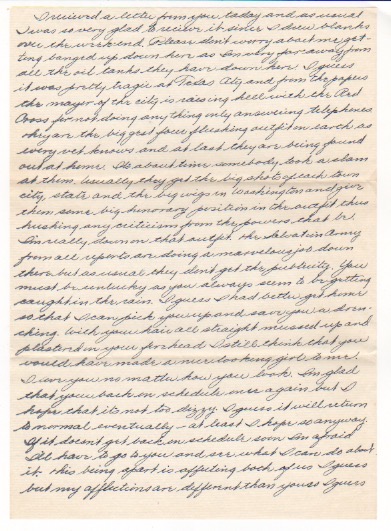 I received a letter from you today and as usual
I was so very glad to receive it since I drew blanks
over the weekend. Please don't worry about me get-
ting banged up down here as I'm very far away from
all the oil tanks they have down here. I guess
it was pretty tragic at Texas City and from the papers
the mayor of the city is raising hell with the Red
Cross for not doing any thing only answering telephones
they are the biggest four flushing outfit on earth as
every vet knows and at last they are being found
out at home. It's about time somebody took a slam
at them. Usually they get the big shots of each town
city, state and the big wigs in Washington and give
them some big honorary position in the outfit thus
hushing any criticism from the powers that be.
I'm really down on that outfit. The Salvation Army
from all reports are doing a marvelous job down
there but as usual they don't get the publicity. You
must be unlucky as you always seem to be getting
caught in the rain. I guess I had better get home
so that I can pick you up and save you a dren-
ching. With your hair all straight mussed up and
plastered in your forehead I still think that you
would have made a nice looking girl to me.
I love you no matter how you look. I'm glad
that you back on schedule once again but I
hope that it's not too dizzy. I guess it will return
to normal eventually - at least I hope so anyway.
If it doesn't get back on schedule soon I'm afraid
I'll have to go to you and see what I can do about
it. This being apart is affecting both of us I guess
but my afflictions are different than yours I guess